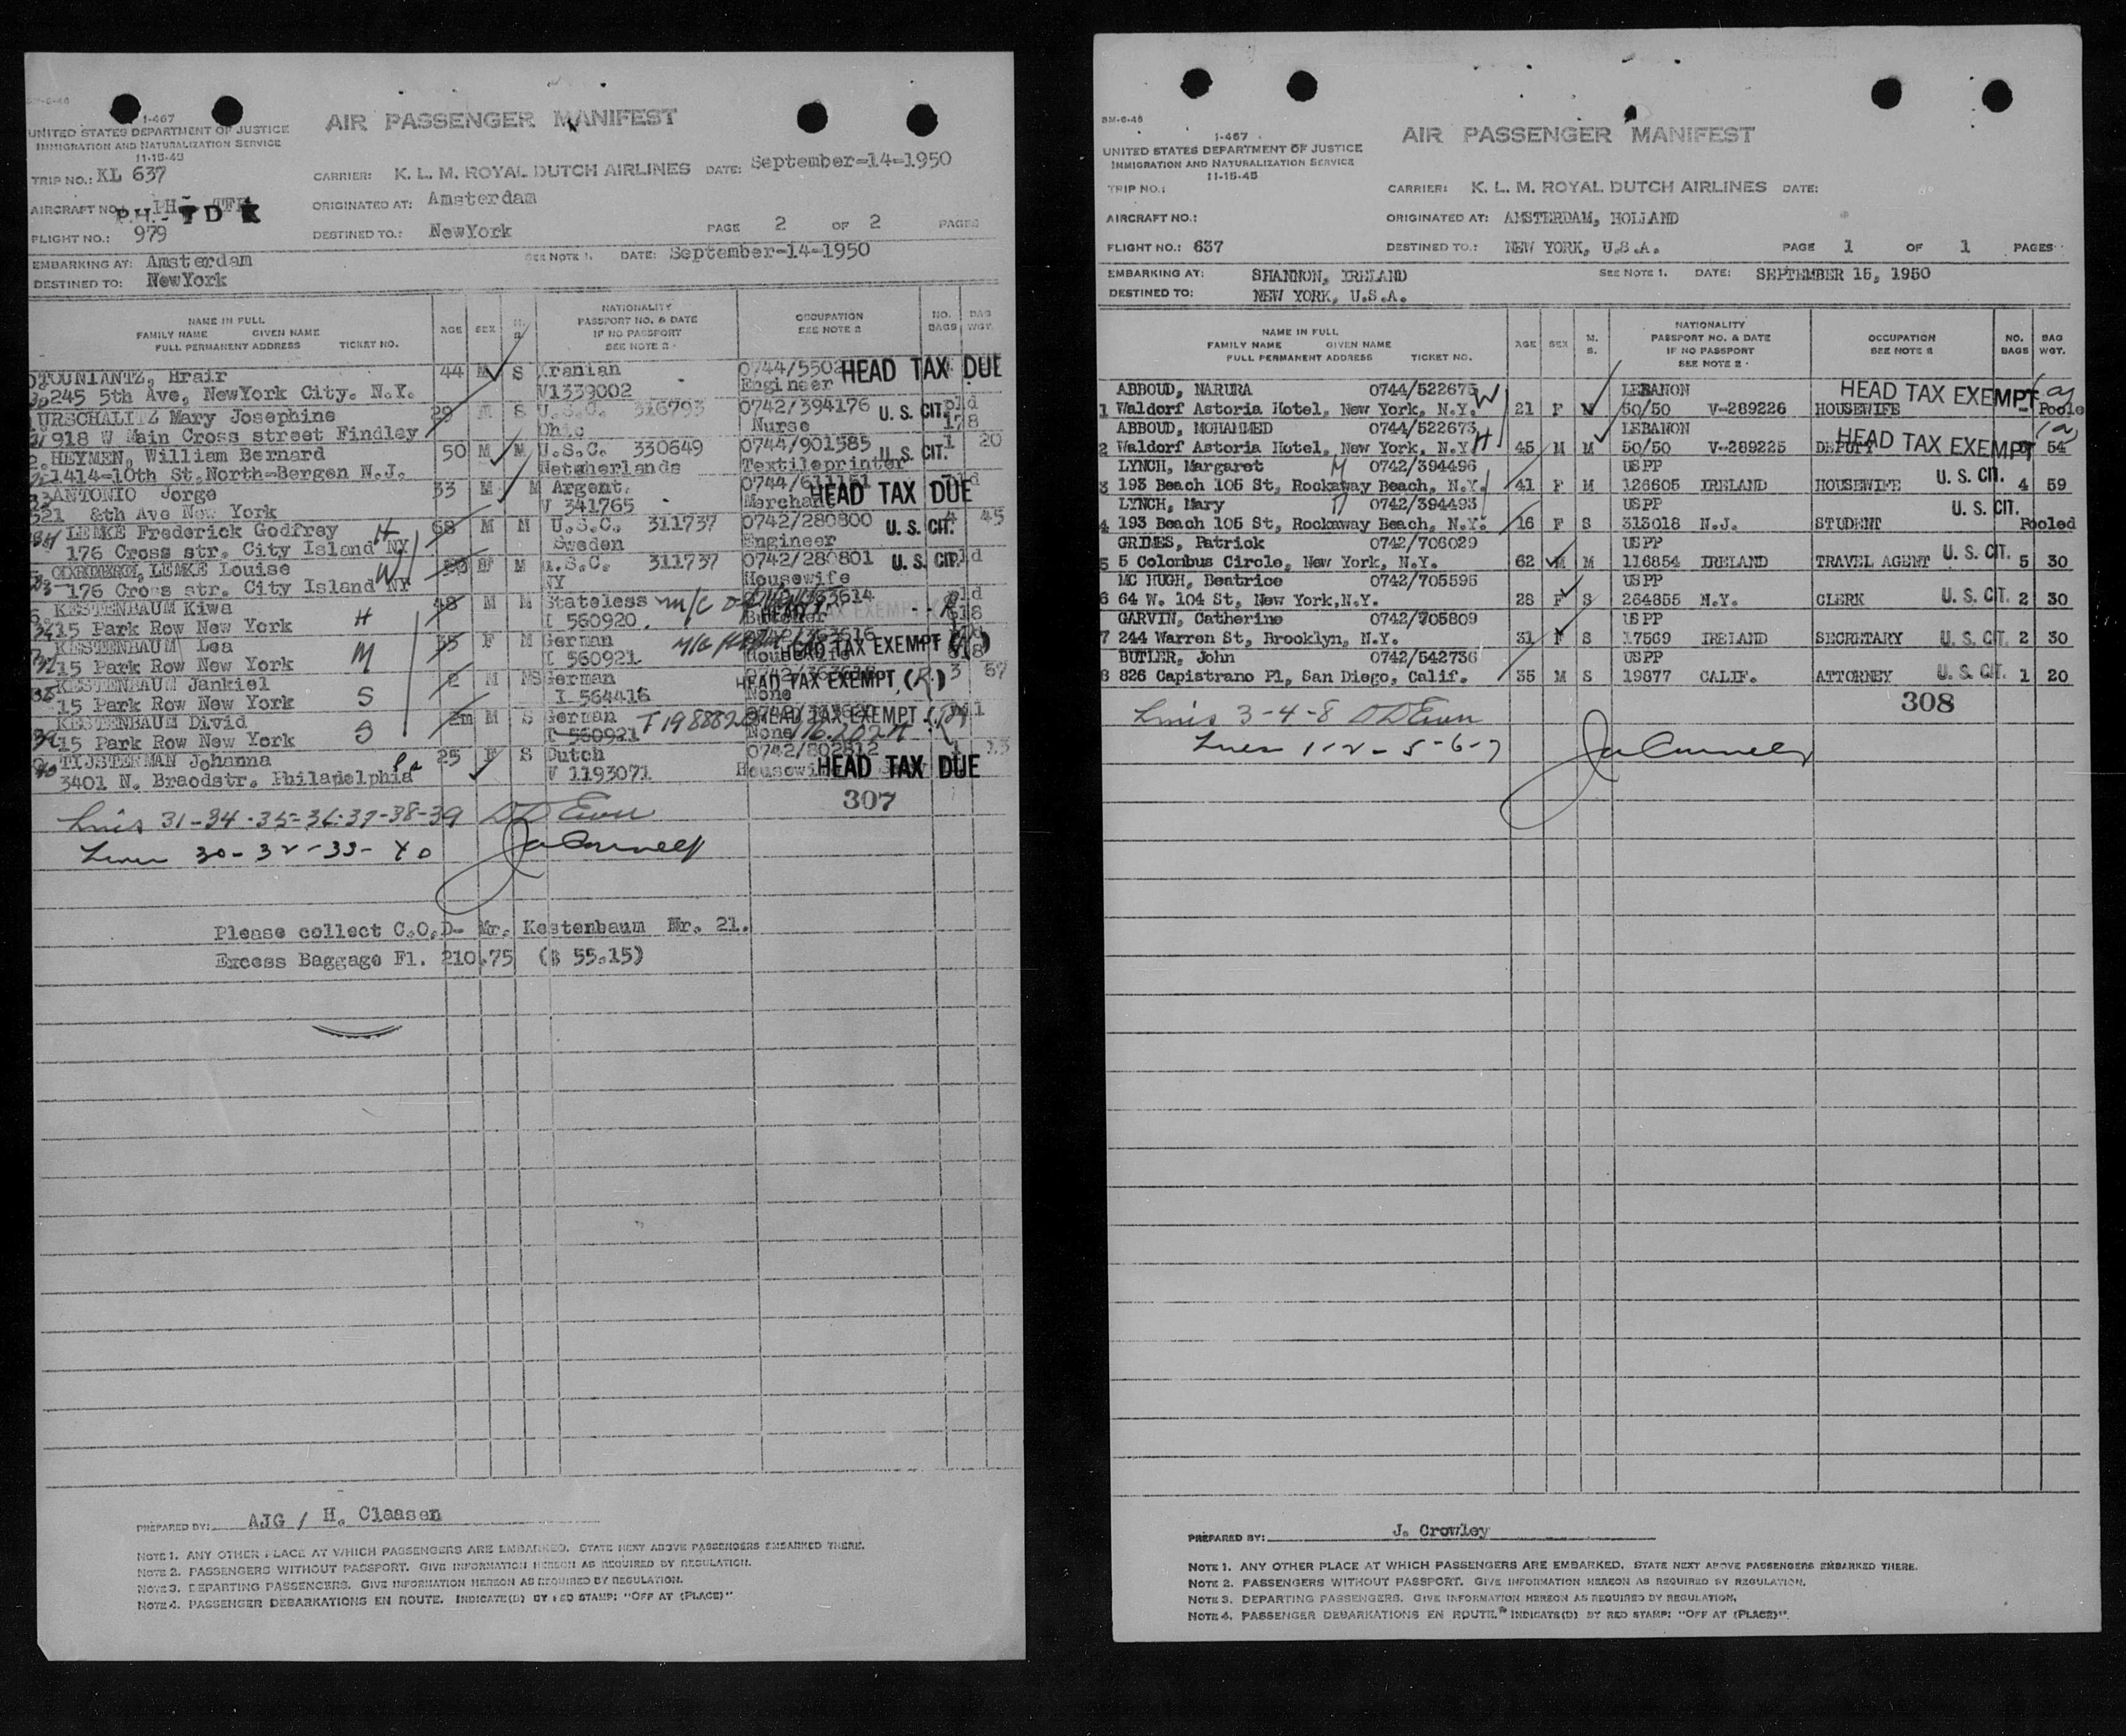 1-467
UNITED STATES DEPARTMENT OF JUSTICE
IMMIGRATION AND NATURALIZATION SERVICE
11-15-45
AIR PASSENGER MANIFEST
TRIP NO.: KL 637
CARRIER: K. L. M. ROYAL DUTCH AIRLINES DATE: September-14-1950
AIRCRAFT NO.: PH-TDK
ORIGINATED AT: Amsterdam
FLIGHT NO.: 979
DESTINED TO.: NewYork PAGE 2 OF 2 PAGES
EMBARKING AT: Amsterdam SEE NOTE 1. DATE: September-14-1950
DESTINED TO: NewYork
NAME IN FULL
FAMILY NAME GIVEN NAME
FULL PERMANENT ADDRESS TICKET NO.
AGE SEX
NATIONALITY
PASSPORT NO. & DATE
IF NO PASSPORT
SEE NOTE 2 -
OCCUPATION
SEE NOTE 2
NO. BAGS
BAG WGT.
TOUNIANTZ, Hrair 44 M S Iranian 0744/5502 HEAD TAX DUE
245 5th Ave, NewYork City. N.Y. V1339002 Engineer
URSCHALITZ Mary Josephine 29 S U.S.C. 316793 0742/394176 U. S. CIT. pld
918 W Main Cross street Findley Ohio Nurse 178
HEYMEN, William Bernard 50 M M U.S.C. 330649 0744/901585 U. S. CIT. 1 20
1414-10th St. North-Bergen N.J. Netherlands Textileprinter
ANTONIO Jorge 33 M M Argent. 0744/611151 HEAD TAX DUE
321 8th Ave New York V 341765 Merchant
LEMKE Frederick Godfrey H 68 M M U.S.C. 311737 0742/280800 U. S. CIT. 4 45
176 Cross str. City Island NY Sweden Engineer
LEMKE Louise W M U.S.C. 311737 0742/280801 U. S. CIT. pld
176 Cross str. City Island NY NY Housewife
KESTENBAUM Kiwa H 48 M M Stateless pld
15 Park Row New York I 560920
KESTENBAUM Lea M 35 F M German HEAD TAX EXEMPT
15 Park Row New York I 560921
KESTENBAUM Jankiel S 2 M S German HEAD TAX EXEMPT (R) 3 67
15 Park Row New York I 564416 None
KESTENBAUM Divid S 2m M S German HEAD TAX EXEMPT
15 Park Row New York I 560921 None
TIJSTERMAN Johanna 25 F S Dutch 0742/802812 1 13
3401 N. Braodstr. Philadelphia Pa V 1193071 HEAD TAX DUE
307
31-34-35-36-37-38-39
30-32-33-40
Please collect C.O.D- Mr. Kestenbaum Nr. 21.
Excess Baggage Fl. 210.75 ($ 55.15)
PREPARED BY: AJG / H. Claasen
NOTE 1. ANY OTHER PLACE AT WHICH PASSENGERS ARE EMBARKED. STATE NEXT ABOVE PASSENGERS EMBARKED THERE.
NOTE 2. PASSENGERS WITHOUT PASSPORT. GIVE INFORMATION HEREON AS REQUIRED BY REGULATION.
NOTE 3. DEPARTING PASSENGERS. GIVE INFORMATION HEREON AS REQUIRED BY REGULATION.
NOTE 4. PASSENGER DEBARKATIONS EN ROUTE. INDICATE(D) BY RED STAMP: "OFF AT (PLACE)"
BM-6-48
1-467
UNITED STATES DEPARTMENT OF JUSTICE
IMMIGRATION AND NATURALIZATION SERVICE
11-15-45
AIR PASSENGER MANIFEST
TRIP NO.: CARRIER: K. L. M. ROYAL DUTCH AIRLINES DATE:
AIRCRAFT NO.: ORIGINATED AT: AMSTERDAM, HOLLAND
FLIGHT NO.: 637 DESTINED TO.: NEW YORK, U.S.A. PAGE 1 OF 1 PAGES
EMBARKING AT: SHANNON, IRELAND SEE NOTE 1. DATE: SEPTEMBER 15, 1950
DESTINED TO: NEW YORK, U.S.A.
NAME IN FULL
FAMILY NAME GIVEN NAME
FULL PERMANENT ADDRESS TICKET NO.
AGE SEX M. S.
NATIONALITY
PASSPORT NO. & DATE
IF NO PASSPORT
SEE NOTE 2 -
OCCUPATION
SEE NOTE 2
NO. BAGS
BAG WGT.
ABBOUD, NARURA 0744/522675 W LEBANON HEAD TAX EXEMPT
1 Waldorf Astoria Hotel, New York, N.Y. 21 F M 50/50 V-289226 HOUSEWIFE Poole
ABBOUD, MOHAMMED 0744/522673 H LEBANON HEAD TAX EXEMPT
2 Waldorf Astoria Hotel, New York, N.Y. 45 M M 50/50 V-289225 DEPUTY 54
LYNCH, Margaret M 0742/394496 USPP U. S. CIT.
3 193 Beach 105 St, Rockaway Beach, N.Y. 41 F M 126605 IRELAND HOUSEWIFE 4 59
LYNCH, Mary D 0742/394493 USPP U. S. CIT.
4 193 Beach 105 St, Rockaway Beach, N.Y. 16 F S 313018 N.J. STUDENT Pooled
GRIMES, Patrick 0742/706029 USPP U. S. CIT.
5 5 Colombus Circle, New York, N.Y. 62 M M 116854 IRELAND TRAVEL AGENT 5 30
MC HUGH, Beatrice 0742/705595 USPP
6 64 W. 104 St, New York,N.Y. 28 F S 264855 N.Y. CLERK U. S. CIT. 2 30
GARVIN, Catherine 0742/705809 USPP
7 244 Warren St, Brooklyn, N.Y. 31 F S 17569 IRELAND SECRETARY U. S. CIT. 2 30
BUTLER, John 0742/542736 USPP
8 826 Capistrano Pl, San Diego, Calif. 35 M S 19877 CALIF. ATTORNEY U. S. CIT. 1 20
308
3-4-8
1-2-5-6-7
PREPARED BY: J. Crowley
NOTE 1. ANY OTHER PLACE AT WHICH PASSENGERS ARE EMBARKED. STATE NEXT ABOVE PASSENGERS EMBARKED THERE.
NOTE 2. PASSENGERS WITHOUT PASSPORT. GIVE INFORMATION HEREON AS REQUIRED BY REGULATION.
NOTE 3. DEPARTING PASSENGERS. GIVE INFORMATION HEREON AS REQUIRED BY REGULATION.
NOTE 4. PASSENGER DEBARKATIONS EN ROUTE. INDICATE(D) BY RED STAMP: "OFF AT (PLACE)".